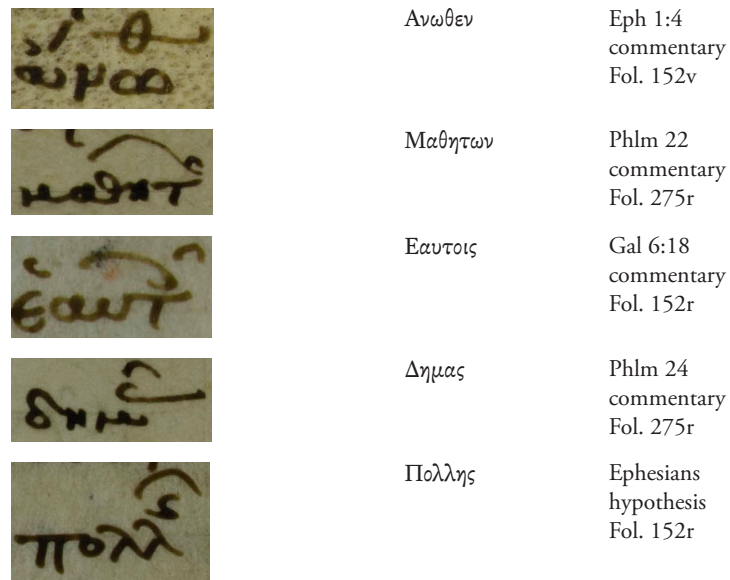 Ανωθεν
Eph 1:4
commentary
Fol. 152v
Μαθητων
Phlm 22
commentary
Fol. 275r
Εαυτοις
Gal 6:18
commentary
Fol. 152r
Δημας
Phlm 24
commentary
Fol. 275r
Πολλης
Ephesians
hypothesis
Fol. 152r